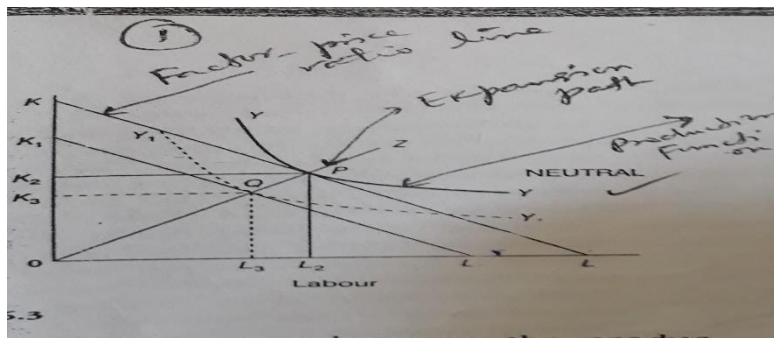 1
Factor-price
ratio line
Expansion
path
Production
Functi
on
K
Y
K₁
Y₁
Z
P
K₂
NEUTRAL
Q
K₃
Y
Y₁
O
L₃
L₂
L
L
Labour
5.3